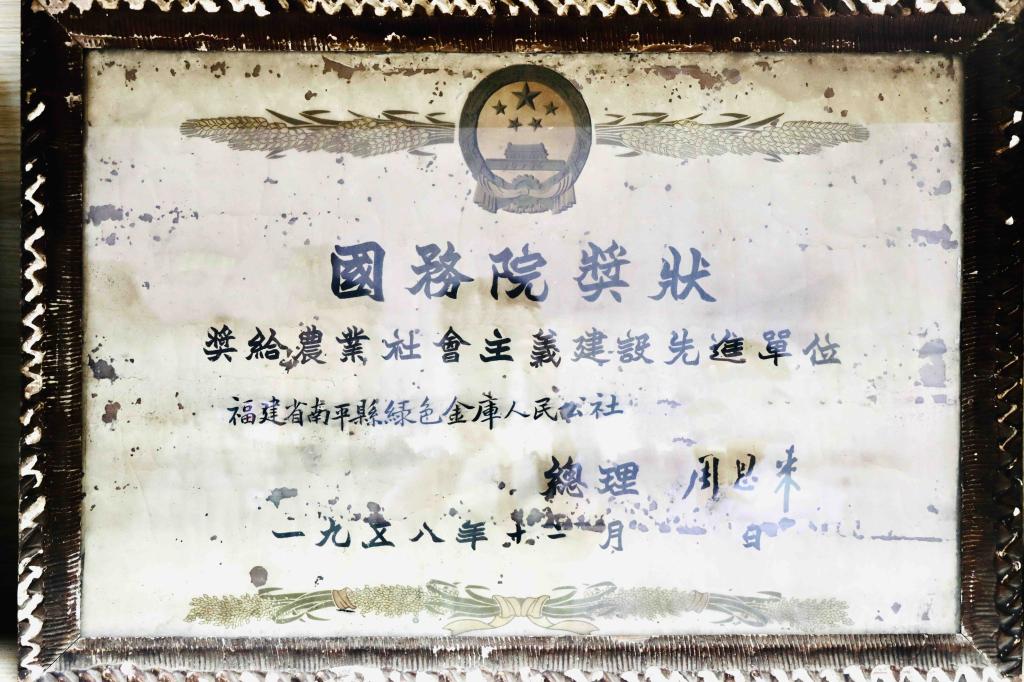 國務院獎狀
獎給農業社會主義建設先進單位
福建省南平縣綠色金庫人民公社
總理 周恩來
一九五八年十二月 日